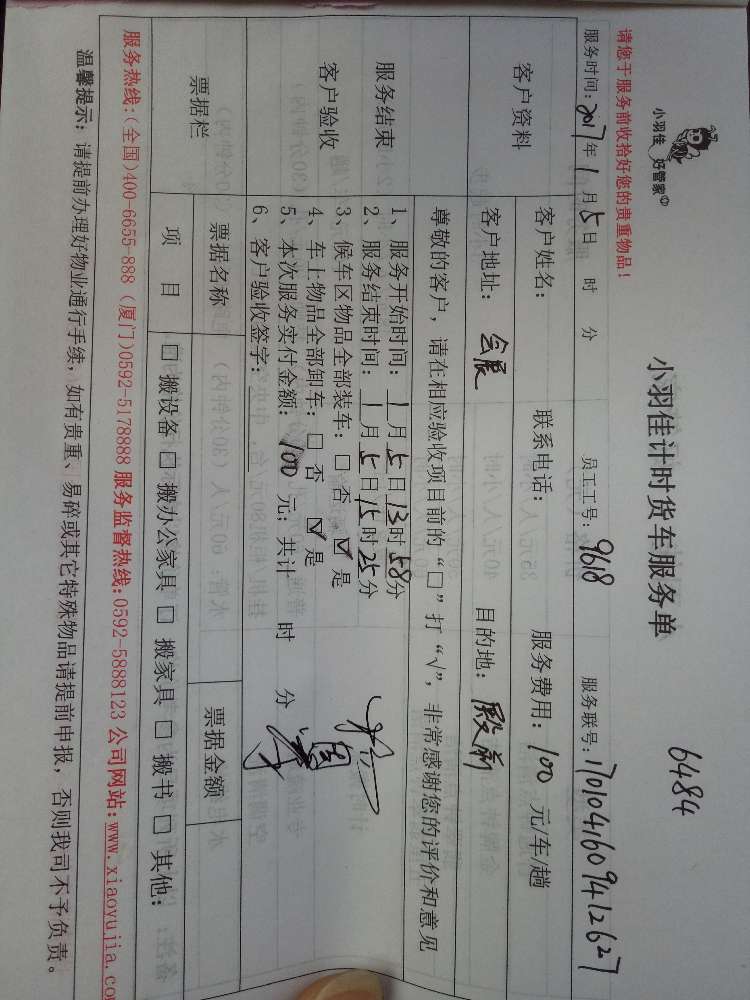 小羽佳 好管家
6484
小羽佳计时货车服务单
请您于服务前收拾好您的贵重物品！
服务时间：2017年1月5日 时 分 员工工号：9618 服务联号：1701041609412627
客户资料
客户姓名： 联系电话： 服务费用：100 元/车/趟
客户地址：会展 目的地：殿前
尊敬的客户，请在相应验收项目前的“□”打“√”，非常感谢您的评价和意见
服务结束
客户验收
1、服务开始时间：1月5日13时58分
2、服务结束时间：1月5日15时25分
3、候车区物品全部装车：□ 否 ☑ 是
4、车上物品全部卸车：□ 否 ☑ 是
5、本次服务实付金额：100 元；共计 时 分
6、客户验收签字：
票据栏
票据名称 票据金额
项 目 □ 搬设备 □ 搬办公家具 □ 搬家具 □ 搬书 □ 其他：
服务热线：(全国)400-6655-888 (厦门)0592-5178888 服务监督热线：0592-5888123 公司网站：www.xiaoyujia.co
温馨提示：请提前办理好物业通行手续，如有贵重、易碎或其它特殊物品请提前申报，否则我司不予负责。